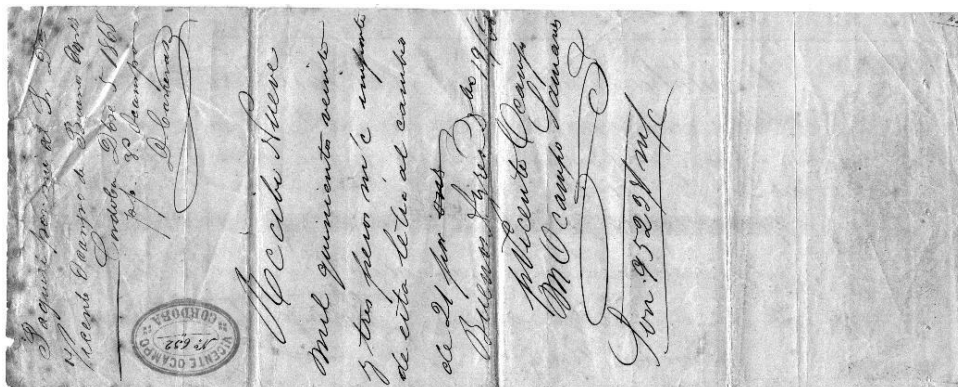 Paguese por mi al Sr Dn
Vicente Ocampo de Buenos Ayres
Cordoba Dbre 5 1868
p.p. Ocampo
VICENTE OCAMPO
Nº 632
CORDOBA
Recibi Nueve
mil quinientos veinte
y tres pesos m/c importe
de esta letra al cambio
de 21 por
Buenos Ayres 19/68
p Vicente Ocampo
M Ocampo Samanes
Son $ 9523 m/c